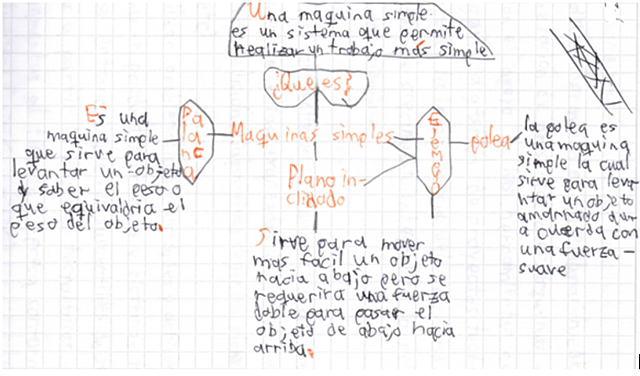 Una maquina simple
es un sistema que permite
realizar un trabajo más simple
¿Que es?
Maquinas simples
Palanca
Es una
maquina simple
que sirve para
levantar un objeto
y saber el peso o
que equivaldria el
peso del objeto.
Plano in-
clidado
Sirve para mover
mas facil un objeto
hacia abajo pero se
requerira una fuerza
doble para pasar el
objeto de abajo hacia
arriba.
polea
la polea es
una maquina
simple la cual
sirve para leva
ntar un objeto
amarrado
a cuerda con
una fuerza
suave